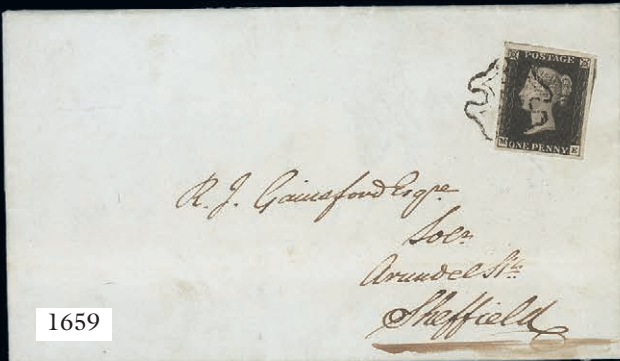 POSTAGE
ONE PENNY
R. J. Gainsford Esqre
Solr
Arundel St
Sheffield
1659